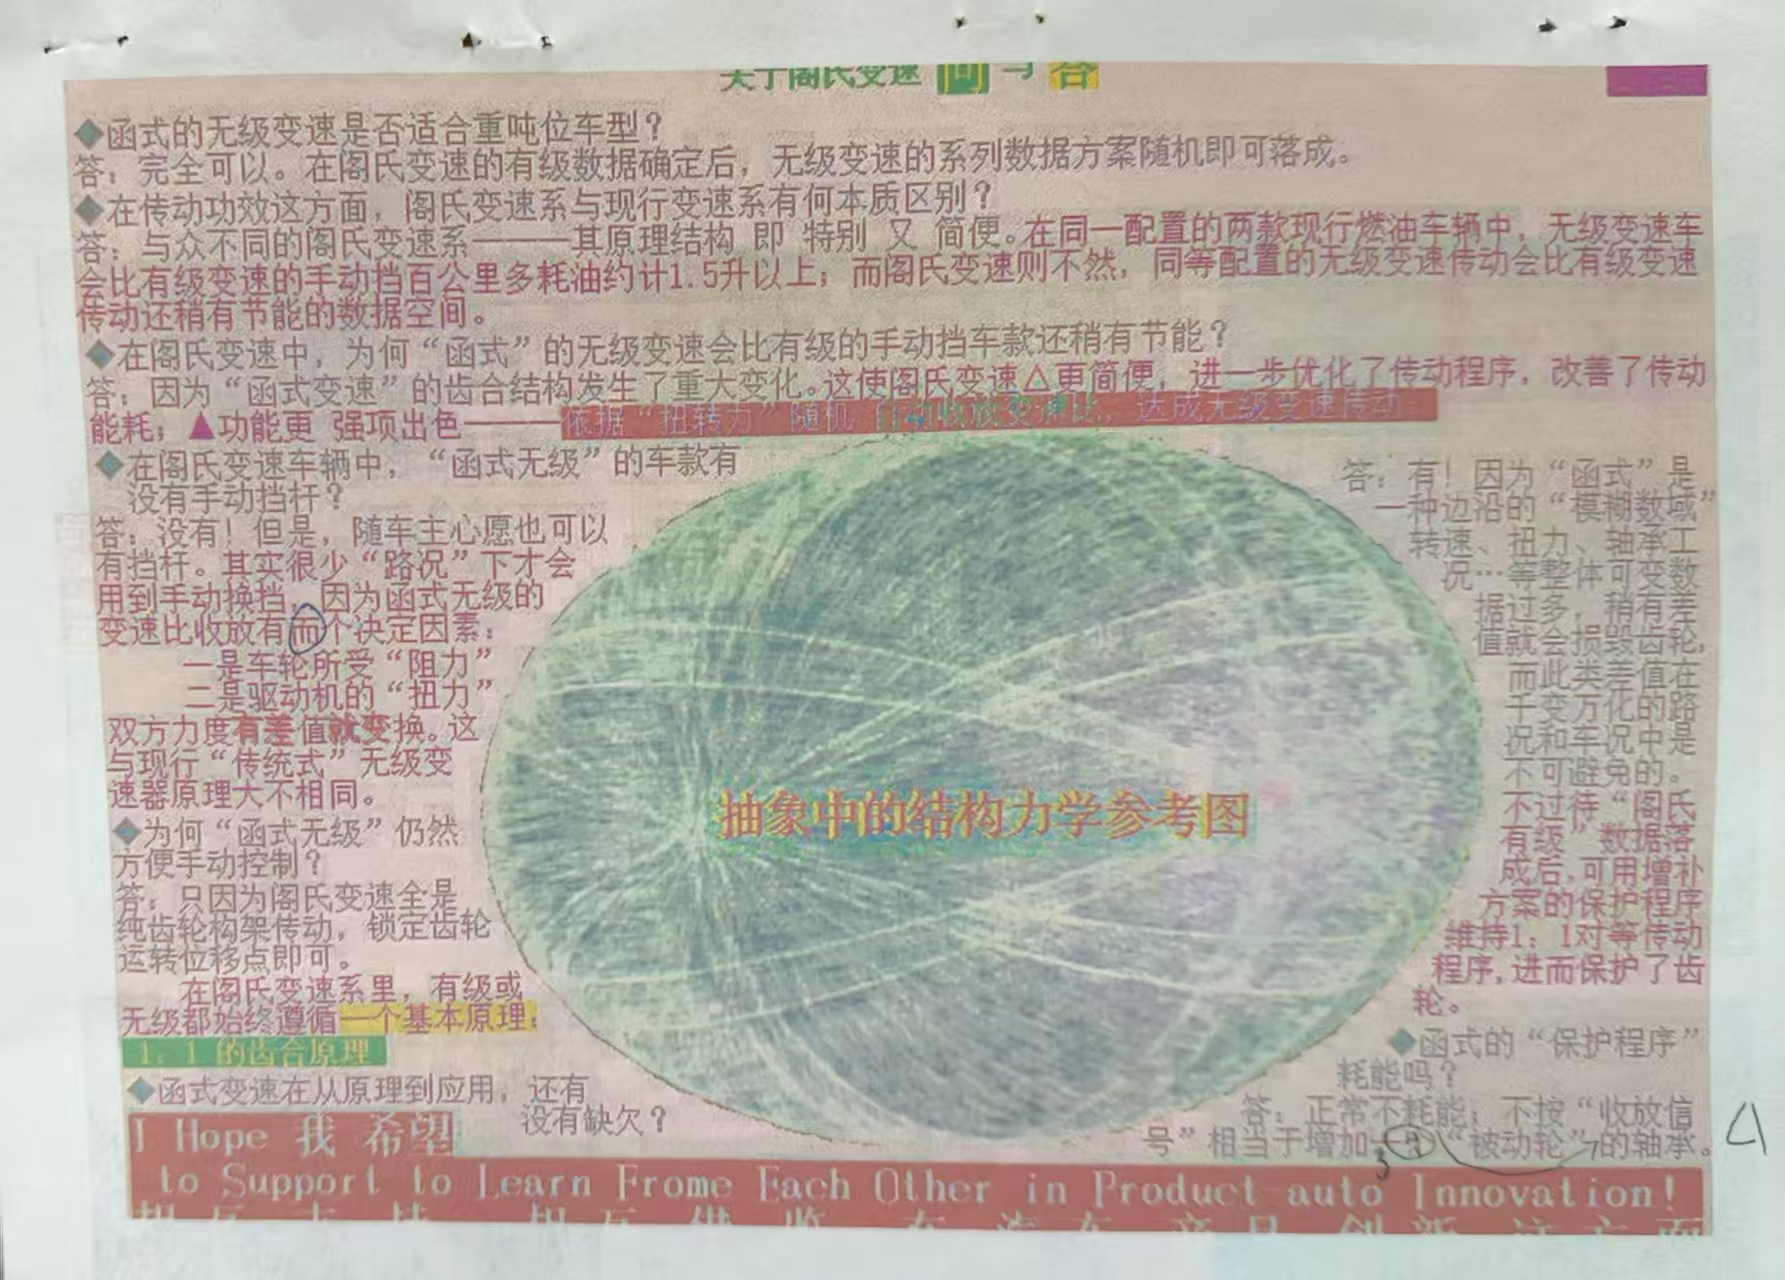 关于阁氏变速 问与答
◆函式的无级变速是否适合重吨位车型？
答：完全可以。在阁氏变速的有级数据确定后，无级变速的系列数据方案随机即可落成。
◆在传动功效这方面，阁氏变速系与现行变速系有何本质区别？
答：与众不同的阁氏变速系———其原理结构 即 特别 又 简便。在同一配置的两款现行燃油车辆中，无级变速车
会比有级变速的手动挡百公里多耗油约计1.5升以上；而阁氏变速则不然，同等配置的无级变速传动会比有级变速
传动还稍有节能的数据空间。
◆在阁氏变速中，为何“函式”的无级变速会比有级的手动挡车款还稍有节能？
答：因为“函式变速”的齿合结构发生了重大变化。这使阁氏变速△更简便，进一步优化了传动程序，改善了传动
能耗；▲功能更 强项出色———依据“扭转力”随机 自动收放变速比，达成无级变速传动。
◆在阁氏变速车辆中，“函式无级”的车款有
没有手动挡杆？
答：没有！但是，随车主心愿也可以
有挡杆。其实很少“路况”下才会
用到手动换挡，因为函式无级的
变速比收放有而个决定因素：
一是车轮所受“阻力”
二是驱动机的“扭力”
双方力度有差值就变换。这
与现行“传统式”无级变
速器原理大不相同。
◆为何“函式无级”仍然
方便手动控制？
答：只因为阁氏变速全是
纯齿轮构架传动，锁定齿轮
运转位移点即可。
在阁氏变速系里，有级或
无级都始终遵循一个基本原理：
1：1 的齿合原理
◆函式变速在从原理到应用，还有
没有缺欠？
答：有！因为“函式”是
一种边沿的“模糊数域”
转速、扭力、轴承工
况…等整体可变数
据过多，稍有差
值就会损毁齿轮，
而此类差值在
千变万化的路
况和车况中是
不可避免的。
不过待“阁氏
有级”数据落
成后，可用增补
方案的保护程序
维持1：1对等传动
程序，进而保护了齿
轮。
◆函式的“保护程序”
耗能吗？
答：正常不耗能；不按“收放信
号”相当于增加“被动轮”的轴承。
抽象中的结构力学参考图
I Hope 我 希望
to Support to Learn Frome Each Other in Product auto Innovation!
相 互 支 持 相 互 借 鉴 在 汽 车 产 品 创 新 这 方 面